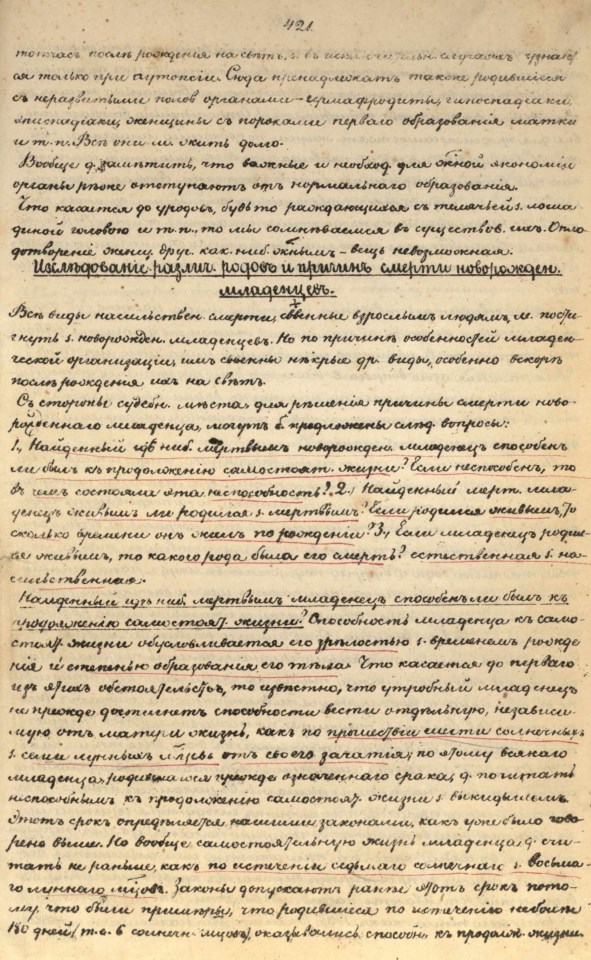 421.
тотчасъ послѣ рожденія на свѣтъ, s. въ случаяхъ узнает
ся только при аутопсіи. Сюда принадлежатъ также родившіеся
съ неразвитыми полов органами – гермафродиты, гипоспадіаки,
эписпадіаки, женщины съ пороками перваго образованія матки
и т.п. Всѣ они м. жить долго.
Вообще д. замѣтить, что важные и необход. для экономіи
органы рѣже отступаютъ отъ нормальнаго образованія.
Что касается до уродовъ, будь то раждающихся съ телячьей s. лоша
диной головою и т.п., то мы сомнѣваемся въ существов. ихъ. Опло
дотвореніе женщ. друг. как. ниб. – вещь невозможная.
Изслѣдованіе различ. родовъ и причинъ смерти новорожден.
младенцевъ.
Всѣ виды насильствен. смерти, взрослымъ людямъ, м. пости
гнуть s. новорожден. младенцевъ. Но по причинѣ особенностей младен
ческой организаціи, имъ свойственны нѣкрые др. виды, особенно вскорѣ
послѣ рожденія ихъ на свѣтъ.
Съ стороны судебн. мѣста, для рѣшенія причины смерти ново
рожденнаго младенца, могутъ б. предложены слѣд. вопросы:
1., Найденный гдѣ ниб. мертвымъ новорожден. младенецъ способенъ
ли былъ къ продолженію самостоят. жизни? Если неспособенъ, то
въ чемъ состояла эта неспособность? 2., Найденный мерт. мла
денецъ живымъ ли родился s. мертвымъ? Если родился живымъ, то
сколько времени онъ жилъ по рожденіи? 3., Если младенецъ родил
ся живымъ, то какого рода была его смерть? естественная s. на
сильственная.
Найденный гдѣ ниб. мертвымъ младенецъ способенъ ли былъ къ
продолженію самостоят. жизни? Способность младенца къ само
стоят. жизни обусловливается его зрѣлостью s. временемъ рожде
нія и степенью образованія его тѣла. Что касается до перваго
изъ этихъ обстоятельствъ, то извѣстно, что утробный младенецъ
не прежде достигнетъ способности вести отдѣльную, независи
мую отъ матери жизнь, какъ по прошествіи шести солнечныхъ
s. семи лунныхъ мѣсцевъ отъ своего зачатія; по этому всякаго
младенца, родившагося прежде означеннаго срака, д. почитать
неспособнымъ къ продолженію самостоят. жизни s. выкидышемъ.
Этотъ срокъ опредѣляется нашими законами, какъ уже было гово
рено выше. Но вообще самостоятельную жизнь младенца д. счи
тать не раньше, какъ по истеченіи седьмаго солнечнаго s. восьма
го луннаго мѣсцовъ. Законы допускаютъ ранѣе этотъ срокъ пото
му, что были примѣры, что родившіеся по истеченію не болѣе
180 дней (т.е. 6 солнечн. мѣсцовъ), оказывались способн. къ продолж. жизни.